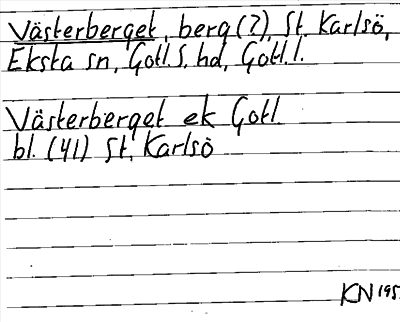 Västerberget, berg (?), St. Karlsö,
Eksta sn, Gotl. S. hd, Gotl. l.
Västerberget ek Gotl
bl. (41) St. Karlsö
KN 195